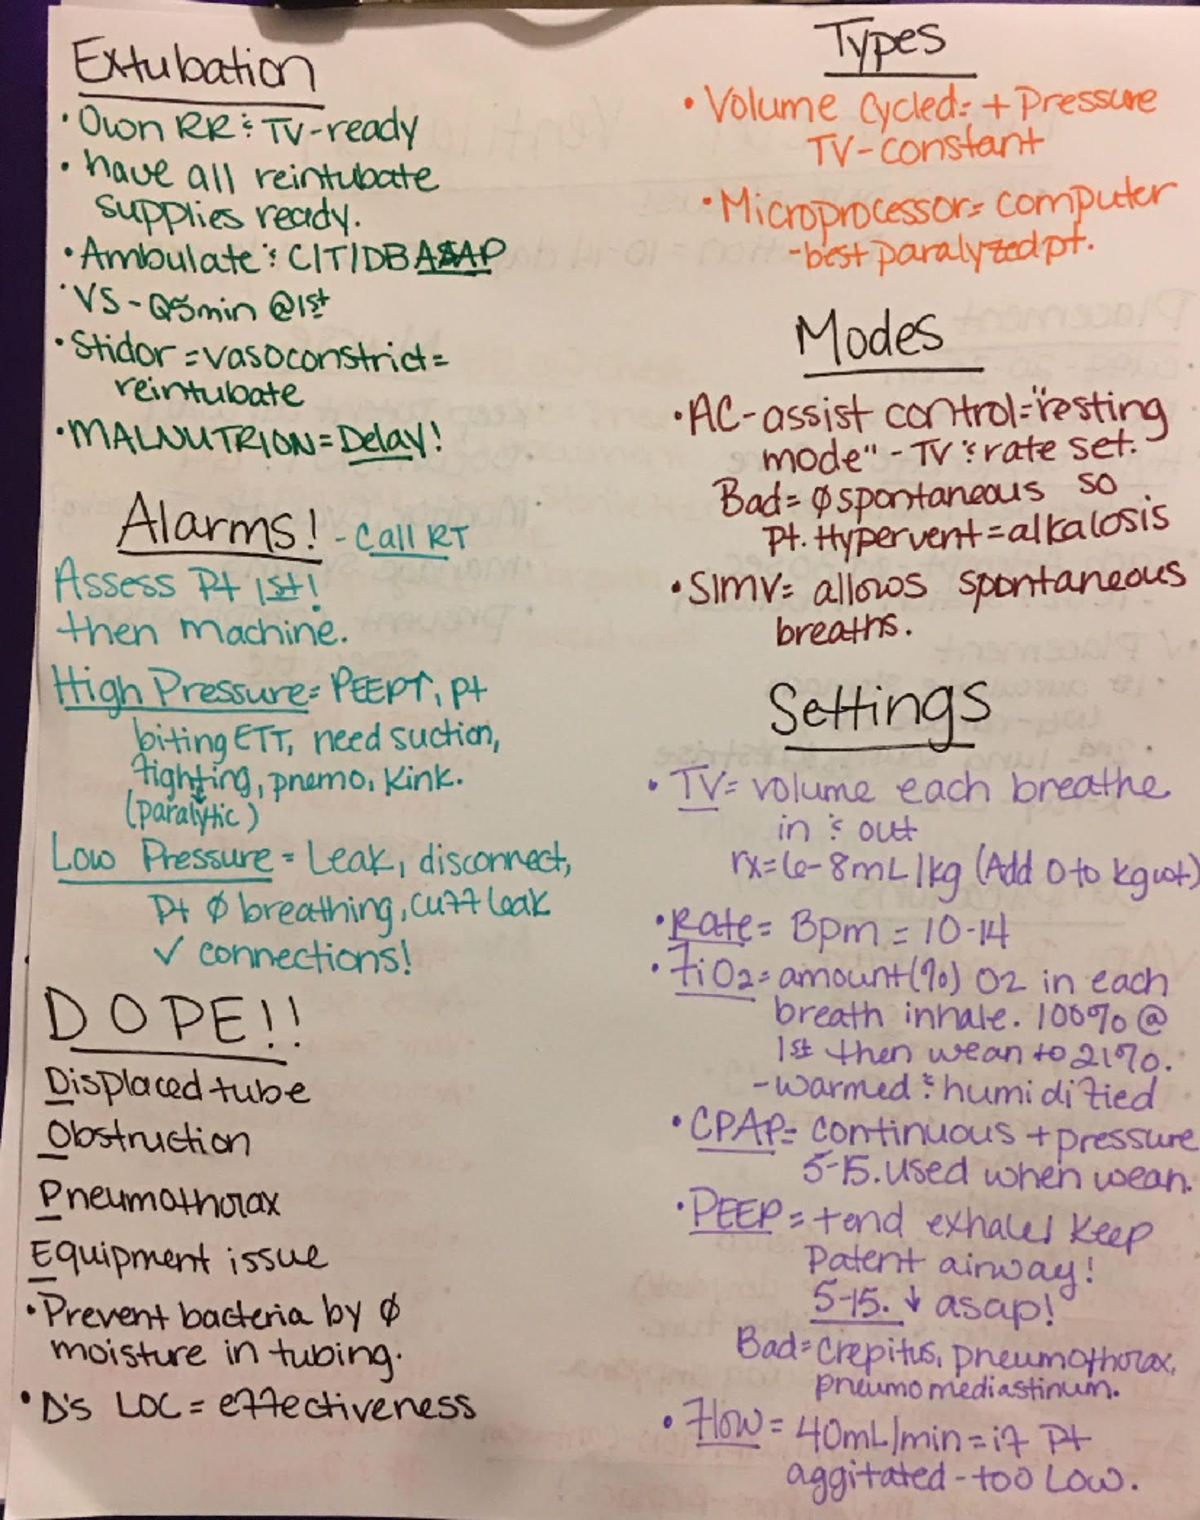 Extubation
• Own RR & TV-ready
• have all reintubate
supplies ready.
• Ambulate & C/T/DB ASAP
• VS - Q5min @1st
• Stidor = vasoconstrict =
reintubate
• MALNUTRION = Delay!
Alarms! - Call RT
Assess Pt 1st!
then machine.
High Pressure = PEEP↑, pt
biting ETT, need suction,
fighting, pnemo, kink.
(paralytic)
Low Pressure = Leak, disconnect,
Pt Ø breathing, cuff leak
✓ connections!
DOPE!!
Displaced tube
Obstruction
Pneumothorax
Equipment issue
• Prevent bacteria by Ø
moisture in tubing.
• D's LOC = effectiveness
Types
• Volume Cycled = + Pressure
TV-constant
• Microprocessor = computer
- best paralyzed pt.
Modes
• AC-assist control = "resting
mode" - TV & rate set.
Bad = Ø spontaneous so
Pt. Hypervent = alkalosis
• SIMV = allows spontaneous
breaths.
Settings
• TV = volume each breathe
in & out
rx = 6-8mL/kg (Add 0 to kg wt)
• Rate = Bpm = 10-14
• FiO2 = amount (%) O2 in each
breath inhale. 100% @
1st then wean to 21%.
- warmed & humidified
• CPAP = continuous + pressure
5-15. used when wean.
• PEEP = + end exhale keep
Patent airway!
5-15. ↓ asap!
Bad = Crepitus, pneumothorax,
pneumomediastinum.
• Flow = 40mL/min = if Pt
aggitated - too Low.